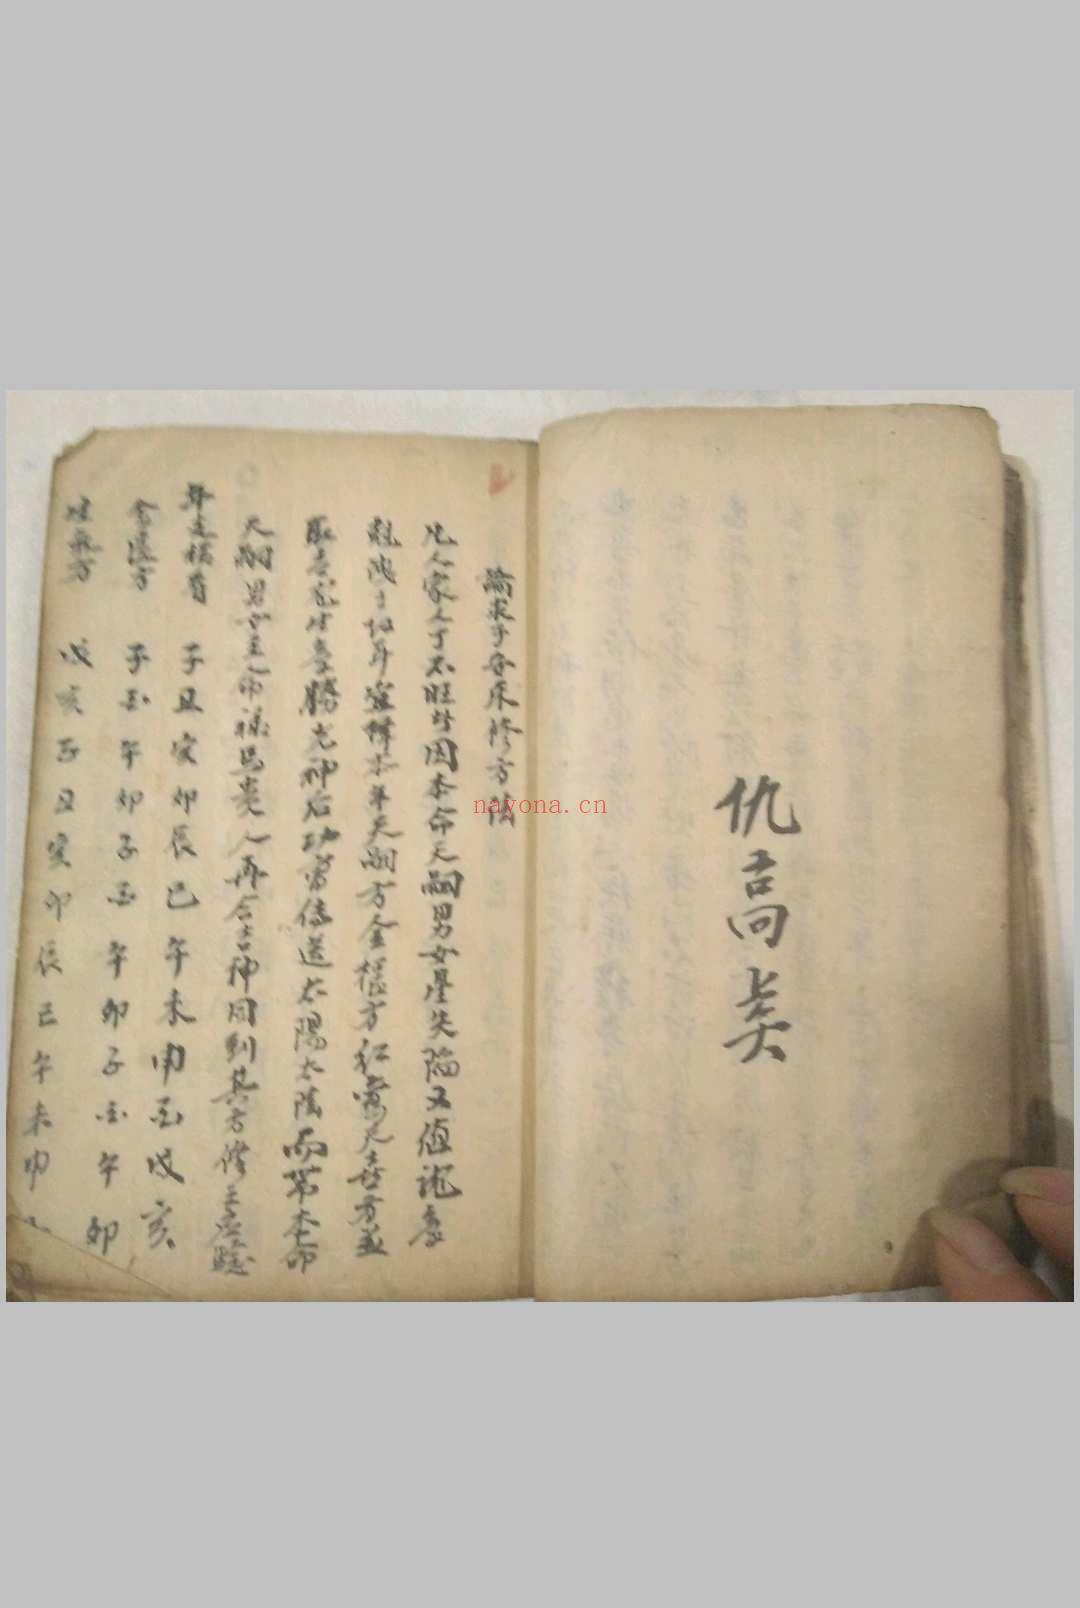 仇高奕
論求子安床修方法
凡人家人丁不旺皆因本命天嗣男女星失陷又值
年宜擇本年天嗣方金櫃方紅鸞天喜方並
取 勝光神后功曹傳送太陽太陰而帶本命
天嗣男女主命祿馬貴人再合吉神同到其方修主應驗
年連橫看 子丑寅卯辰巳午未申酉戌亥
金匱方 子酉午卯子酉午卯子酉午卯
生氣方 戌亥子丑寅卯辰巳午未申
nayona.cn